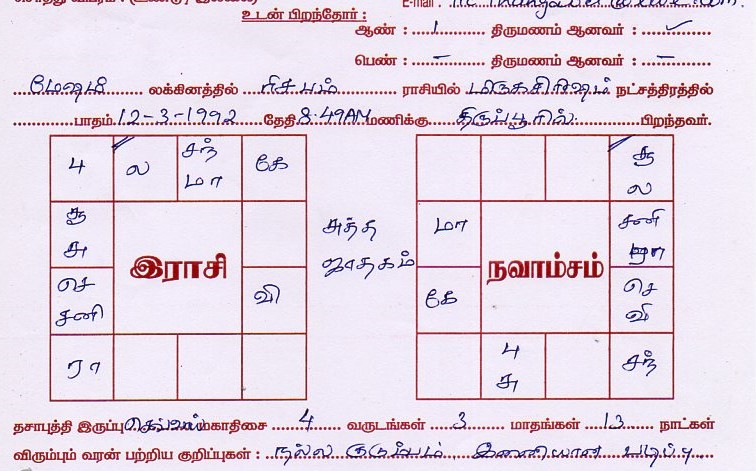 உடன் பிறந்தோர் :
ஆண் : 1 திருமணம் ஆனவர் : ✓
பெண் : – திருமணம் ஆனவர் : –
மேஷம் லக்கினத்தில் ரிசபம் ராசியில் மிருகசிரிஷம் நட்சத்திரத்தில்
பாதம் 12-3-1992 தேதி 8.49AM மணிக்கு திருப்பூரில் பிறந்தவர்.
4 ல சந் கே
மா
சூ
சு
இராசி
செ
சனி
வி
ரா
அத்த
ஜாதகம்
சூ
ல
மா சனி
ரா
நவாம்சம்
கே செ
வி
4
சு
சந்
தசாபுத்தி இருப்பு செவ்வாய் மகாதிசை 4 வருடங்கள் 3 மாதங்கள் 13 நாட்கள்
விரும்பும் வரன் பற்றிய குறிப்புகள் : நல்ல குடும்பம், இணையான படிப்பு